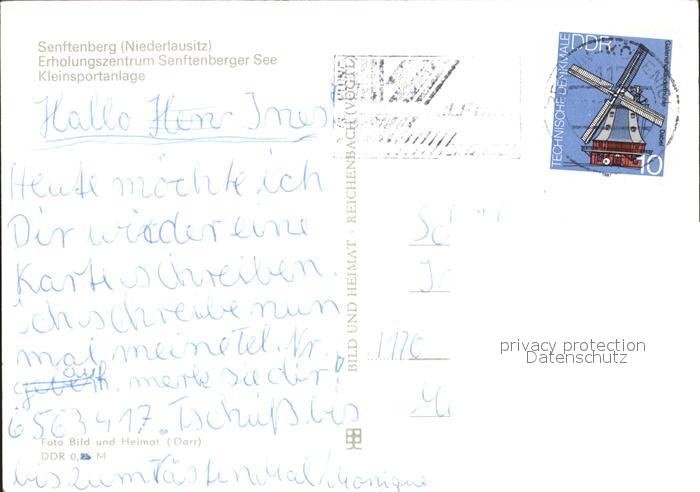 Senftenberg (Niederlausitz)
Erholungszentrum Senftenberger See
Kleinsportanlage
Hallo Herr Ines
Heute möchte ich
Dir wieder eine
Karte schreiben.
ich schreibe nun
mal meine Tel. Nr.
auf. merk sie dir!
6563417. Tschüß bis
bis zum nästen Mal/Monique
Foto Bild und Heimat (Darr)
DDR 0,25 M
BILD UND HEIMAT · REICHENBACH (VOGTL
TECHNISCHE DENKMALE
DDR
10
1170
privacy protection
Datenschutz